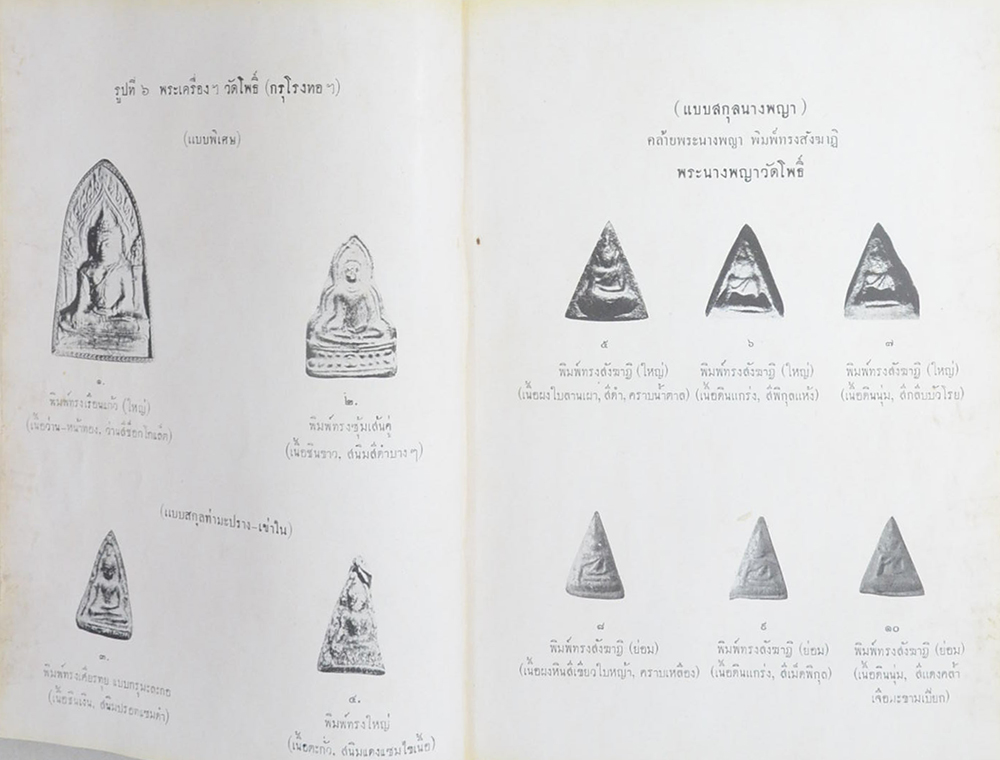 รูปที่ ๖ พระเครื่องฯ วัดโพธิ์ (กรุโรงทอฯ)
(แบบพิเศษ)
๑.
พิมพ์ทรงเรือนแก้ว (ใหญ่)
(เนื้อว่าน-หน้าทอง, ว่านสีช็อกโกแล็ต)
๒.
พิมพ์ทรงซุ้มเส้นคู่
(เนื้อชินขาว, สนิมสีดำบาง ๆ)
(แบบสกุลท่ามะปราง-เข่าใน)
๓.
พิมพ์ทรงเศียรทุย แบบกรุมะละกอ
(เนื้อชินเงิน, สนิมปรอดแซมดำ)
๔.
พิมพ์ทรงใหญ่
(เนื้อตะกั่ว, สนิมแดงแซมไขเนื้อ)
(แบบสกุลนางพญา)
คล้ายพระนางพญา พิมพ์ทรงสังฆาฏิ
พระนางพญาวัดโพธิ์
๕ ๖ ๗
พิมพ์ทรงสังฆาฏิ (ใหญ่) พิมพ์ทรงสังฆาฏิ (ใหญ่) พิมพ์ทรงสังฆาฏิ (ใหญ่)
(เนื้อผงใบลานเผา, สีดำ, คราบน้ำตาล) (เนื้อดินแกร่ง, สีพิกุลแห้ง) (เนื้อดินนุ่ม, สีกลีบบัวโรย)
๘ ๙ ๑๐
พิมพ์ทรงสังฆาฏิ (ย่อม) พิมพ์ทรงสังฆาฏิ (ย่อม) พิมพ์ทรงสังฆาฏิ (ย่อม)
(เนื้อผงหินสีเขียวใบหญ้า, คราบเหลือง) (เนื้อดินแกร่ง, สีเม็ดพิกุล) (เนื้อดินนุ่ม, สีแดงคล้ำ
เจือมะขามเปียก)